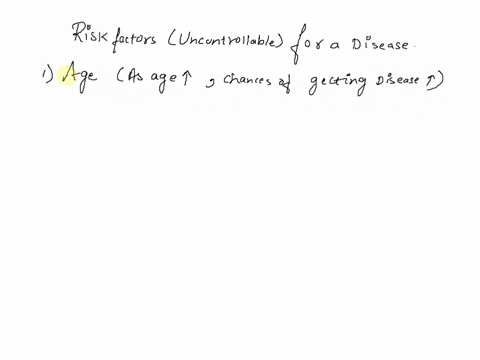 Risk factors (Uncontrollable) for a Disease.
1) Age (As age ↑ , chances of getting Disease ↑)